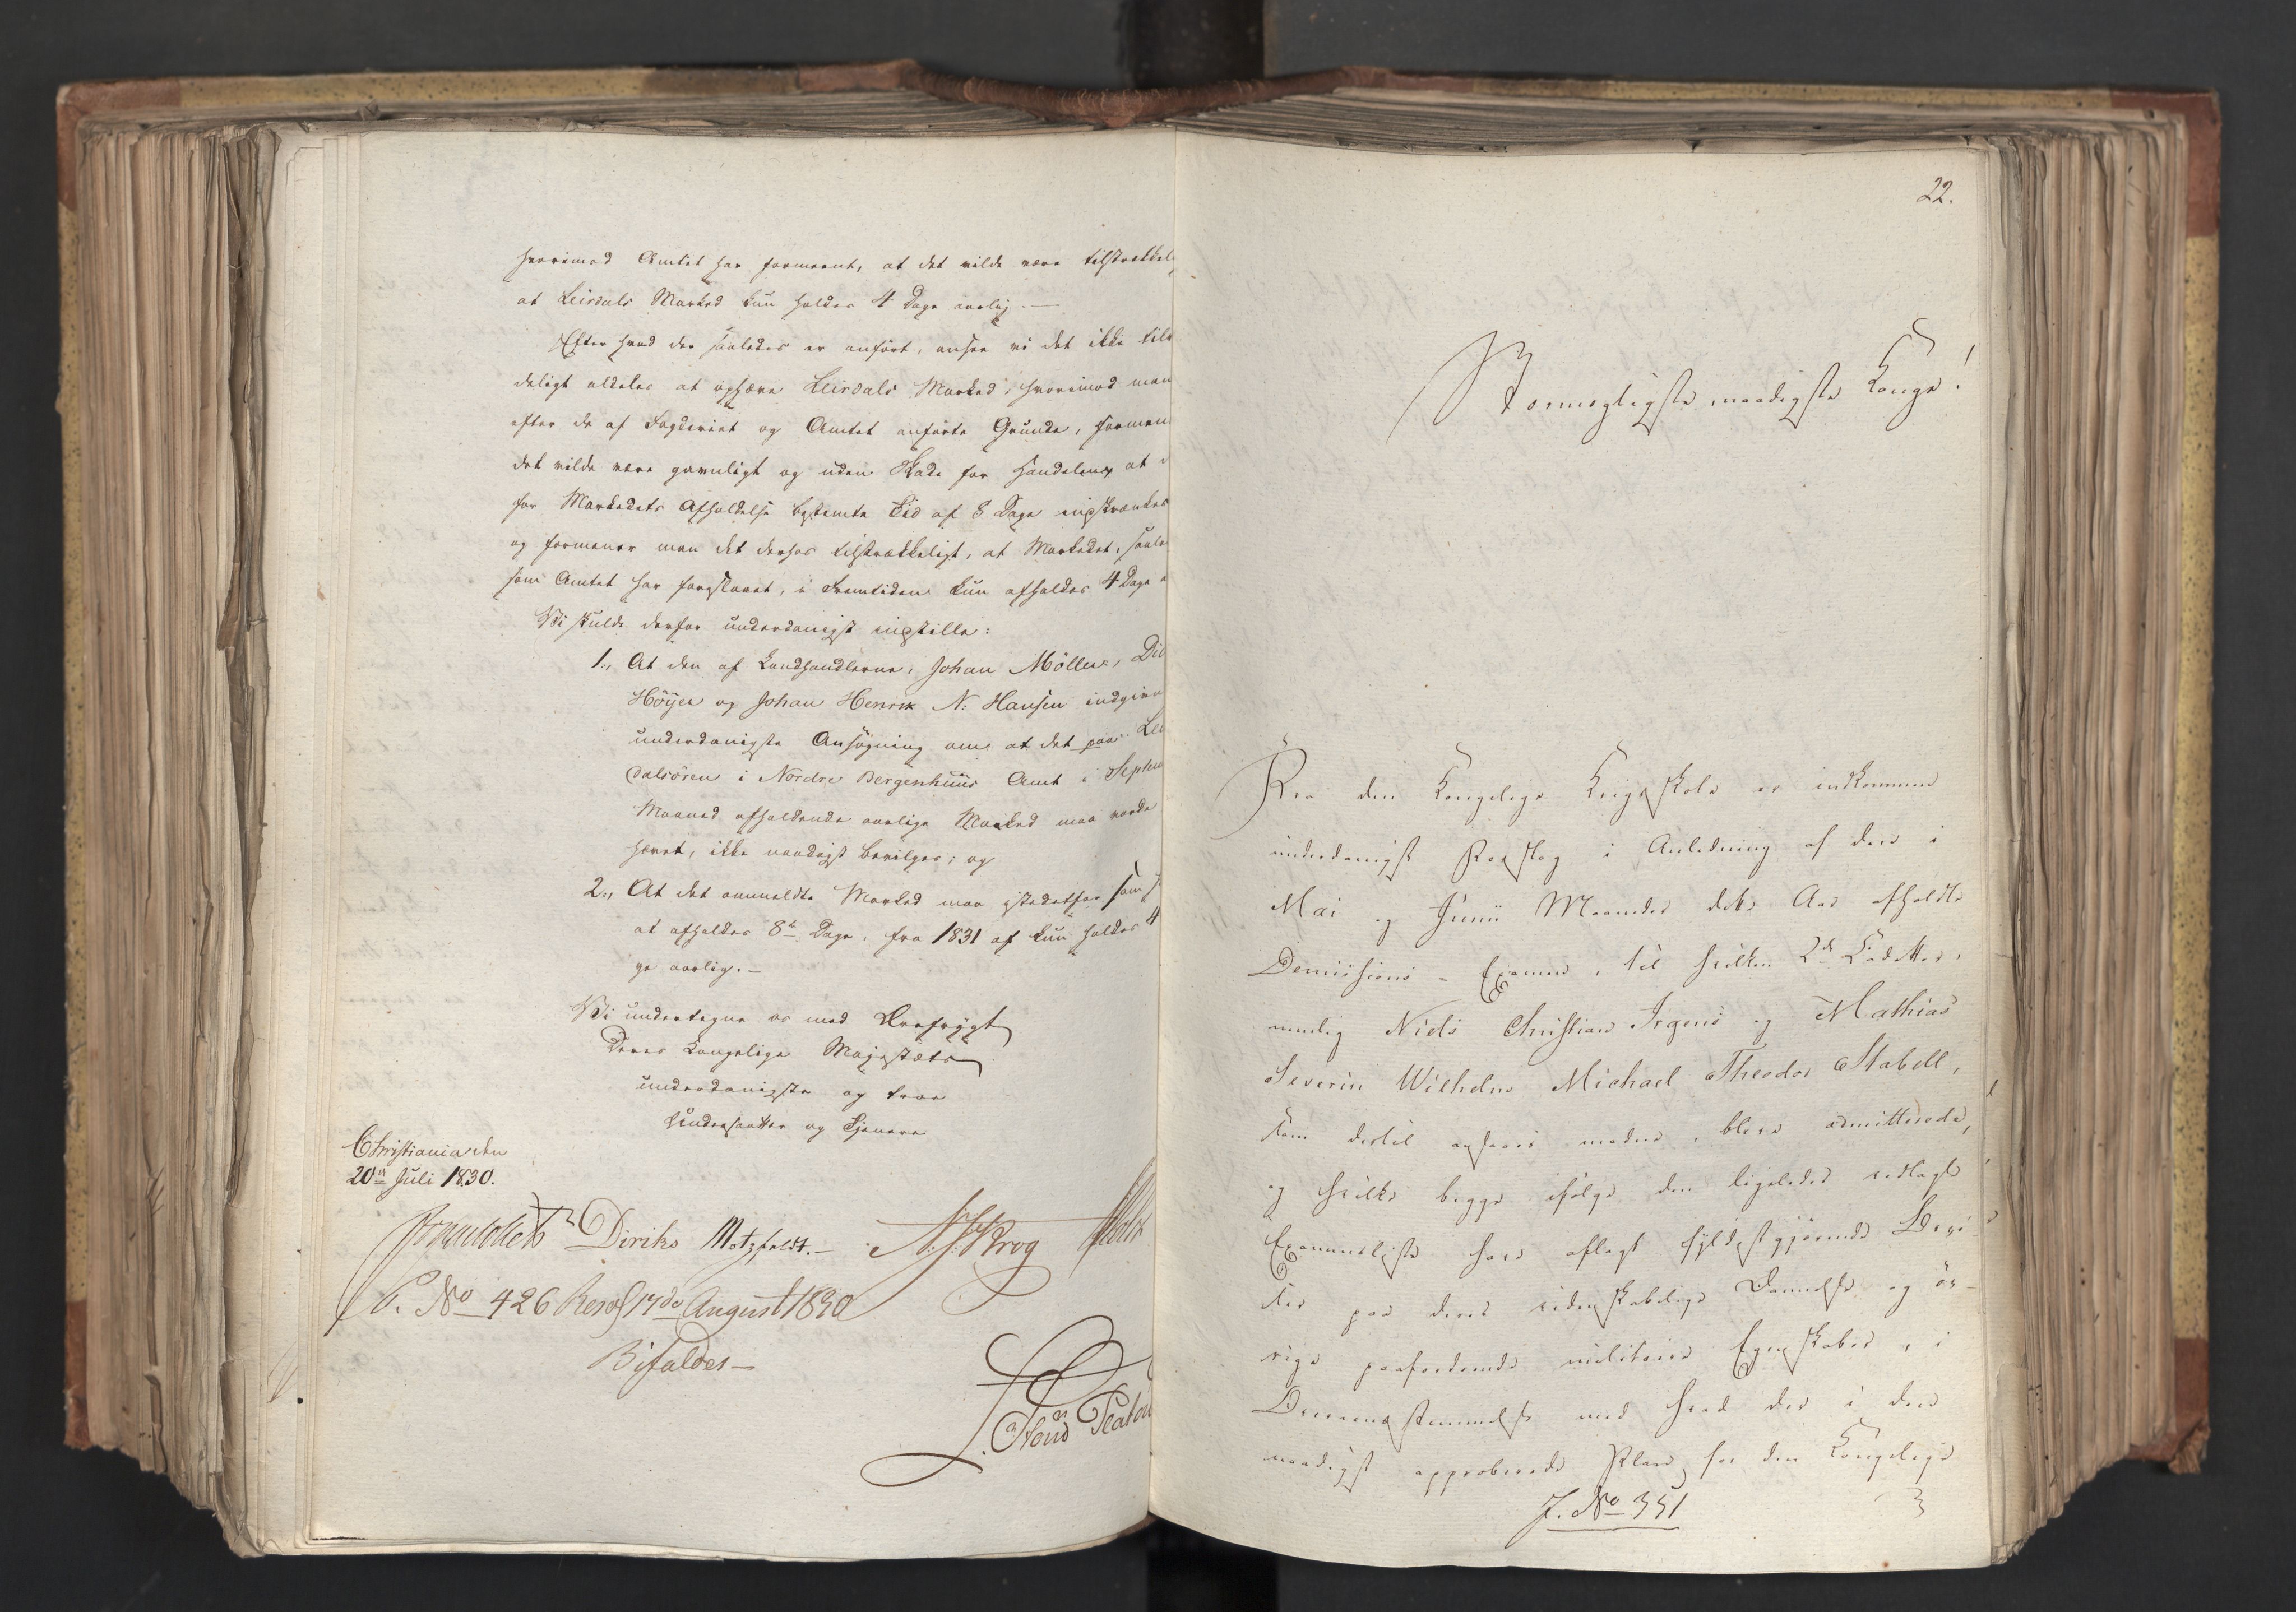 hvorimod Amtet har formeent, at det vilde være tilstrækkel
at Leirdals Marked kun holdes 4 Dage aarlig. —
Efter hvad der saaledes er anført, ansee vi det ikke til
deligt aldeles at ophæve Leirdals Marked, hvorimod man
efter de af Fogderiet og Amtet anførte Grunde, formen
det vilde være gavnligt og uden Skade for Handelen, at
for Markedets Afholdelse bestemte Tid af 8 Dage indskrænkes
og formener man det derhos tilstrækkeligt, at Markedet, saale
som Amtet har foreslaaet, i Fremtiden kun afholdes 4 Dage
Vi skulde derfor underdanigst indstille:
1., At den af Landhandlerne, Johan Möller, Did
Höyer og Johan Henrik N: Hansen indgivne
underdanigste Ansøgning om at det paa Lei
dalsören i Nordre Bergenhuus Amt i Septem
Maaned afholdende aarlige Marked maa vorde
hævet, ikke naadigst bevilges; og
2., At det anmeldte Marked maa istedetfor som
at afholdes 8te Dage, fra 1831 af kun holdes 4
ge aarlig. —
Vi undertegne os med Ærefrygt
Deres Kongelige Majestæts
underdanigste og troe
Undersaatter og Tjenere
Christiania den
20de Juli 1830.
Diriks Motzfeldt. — N: J: Krog Holst
No 426 Resol 17de August 1830
Bifaldes —
Oluf Platou
22.
Stormægtigste, naadigste Konge!
Fra den Kongelige Krigsskole er indkommen
underdanigst Forslag i Anledning af den i
Mai og Junii Maaneder dette Aar afholdte
Demissions-Examen, til hvilken 2de Cadetter,
nemlig Niels Christian Irgens og Mathias
Severin Wilhelm Michael Theodor Stabell,
som dertil ansees modne, bleve admitterede,
og hvilke begge ifølge den ligeledes vedlagte
Examensliste have aflagt fyldestgjørende Bevi
ser paa deres videnskabelige Dannelse og öv-
rige paafordrende militaire Egenskaber, i
Overensstemmelse med hvad der i den
naadigst approberede Plan for den Kongelige
J. No 351